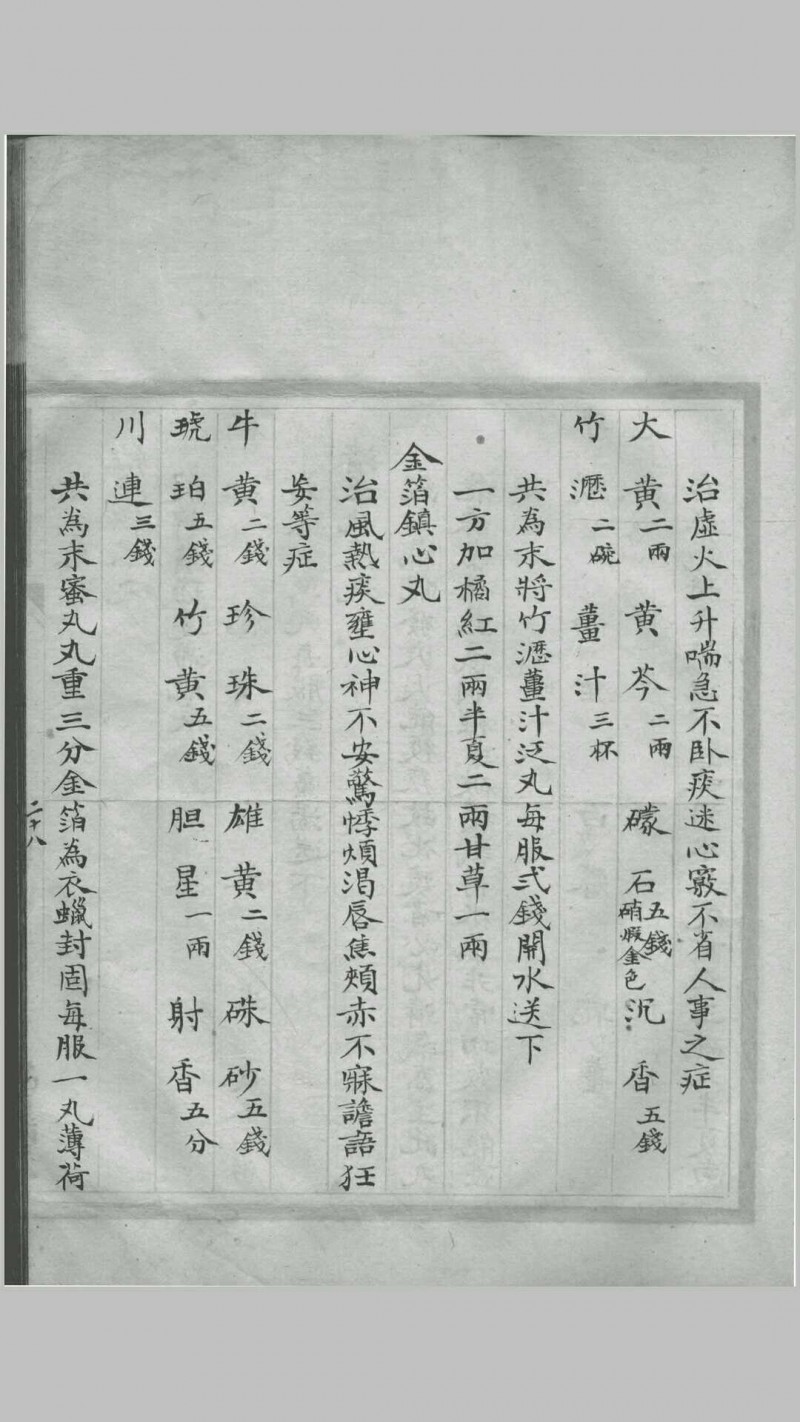 治虛火上升喘急不卧痰迷心竅不省人事之症
大黄二兩 黄芩二兩 礞石五錢硝煆金色 沉香五錢
竹瀝二碗 薑汁三杯
共為末將竹瀝薑汁泛丸每服弍錢開水送下
一方加橘紅二兩半夏二兩甘草一兩
金箔鎮心丸
治風熱痰壅心神不安驚悸煩渴唇焦頰赤不寐譫語狂
妄等症
牛黄二錢 珍珠二錢 雄黄二錢 硃砂五錢
琥珀五錢 竹黄五錢 胆星一兩 射香五分
川連三錢
共為末蜜丸丸重三分金箔為衣蠟封固每服一丸薄荷
二十八